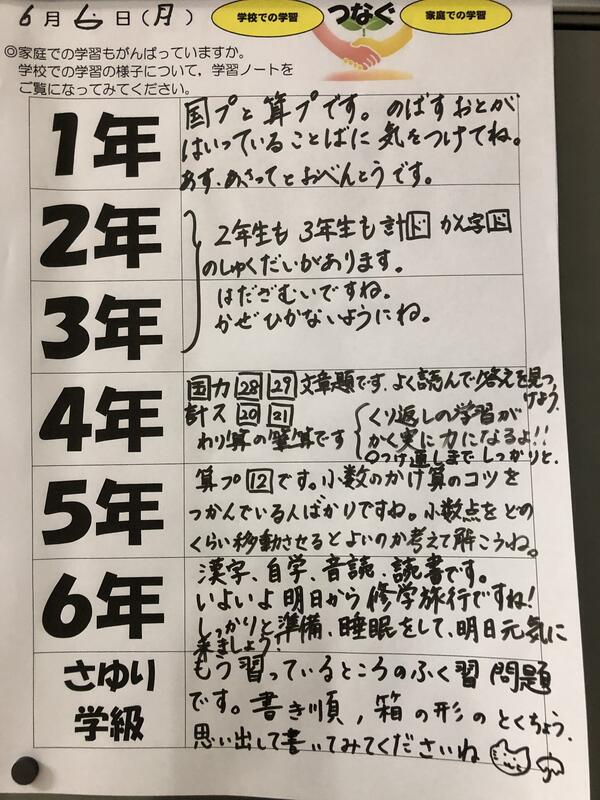 6月6日(月)
学校での学習
つなぐ
家庭での学習
◎家庭での学習もがんばっていますか。
学校での学習の様子について,学習ノートを
ご覧になってみてください。
1年
国プと算プです。のばすおとが
はいっていることばに気をつけてね。
あす、あさってとおべんとうです。
2年
2年生も3年生も計ド かん字ド
のしゅくだいがあります。
3年
はだざむいですね。
かぜひかないようにね。
4年
国力 28 29 文章題です。よく読んで答えを見つ
けよう。
計ス 20 21
わり算の筆算です
くり返しの学習が
かく実に力になるよ!!
○つけ直しまでしっかりと。
5年
算プ12です。小数のかけ算のコツを
つかんでいる人ばかりですね。小数点をどの
くらい移動させるとよいのか考えて解こうね。
6年
漢字、自学、音読、読書です。
いよいよ明日から修学旅行ですね!
しっかりと準備、睡眠をして、明日元気に
来ましょう!
さゆり
学級
もう習っているところのふく習問題
です。書き順,箱の形のとくちょう、
思い出して書いてみてくださいね